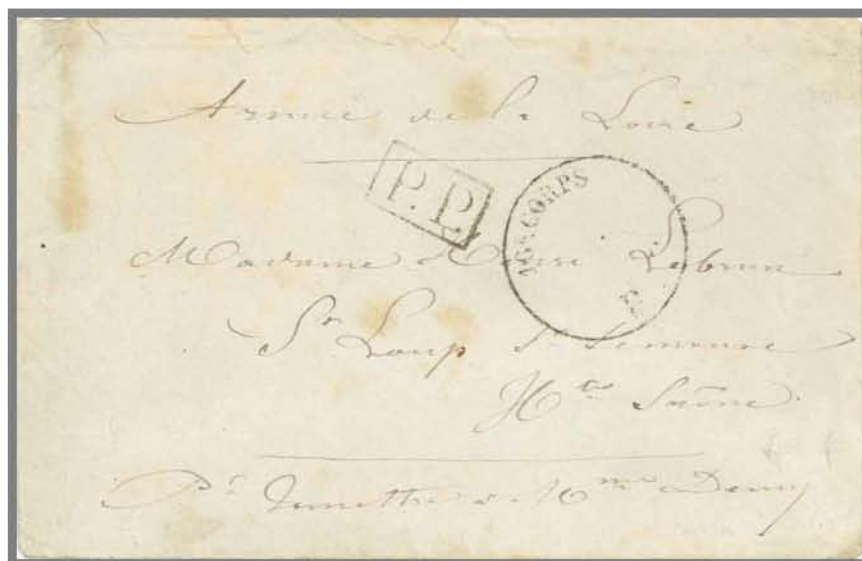 Armée de la Loire
P.P.
16e CORPS
Madame Henri Lebrun
St Loup s. Semouse
Hte Saône
Pr
& Mme